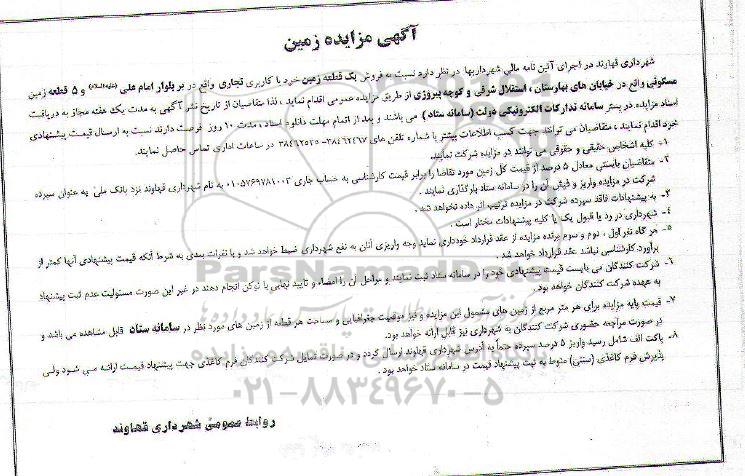 آگهی مزایده زمین
شهرداری قهاوند در اجرای آئین نامه مالی شهرداریها در نظر دارد نسبت به فروش یک قطعه زمین خرد با کاربری تجاری واقع در بر بلوار امام علی (علیه السلام) و ۵ قطعه زمین
مسکونی واقع در خیابان های بهارستان ، استقلال شرقی و کوچه پیروزی از طریق مزایده عمومی اقدام نماید ، لذا متقاضیان از تاریخ نشر آگهی به مدت یک هفته مجاز به دریافت
اسناد مزایده در بستر سامانه تدارکات الکترونیکی دولت (سامانه ستاد ) می باشند و بعد از اتمام مهلت دانلود اسناد ، مدت ۱۰ روز فرصت دارند نسبت به ارسال قیمت پیشنهادی
خود اقدام نمایند ، متقاضیان می توانند جهت کسب اطلاعات بیشتر با شماره تلفن های ۳۸۴۶۲۴۶۷-۳۸۴۶۲۵۲۵ در ساعات اداری تماس حاصل نمایند.
۱- کلیه اشخاص حقیقی و حقوقی می توانند در مزایده شرکت نمایند.
۲- متقاضیان بایستی معادل ۵ درصد از قیمت کل زمین مورد تقاضا را برابر قیمت کارشناسی به حساب جاری ۰۱۰۵۷۶۹۷۸۱۰۰۳ به نام شهرداری قهاوند نزد بانک ملی به عنوان سپرده
شرکت در مزایده واریز و فیش آن را در سامانه ستاد بارگذاری نمایند .
۳- به پیشنهادات فاقد سپرده شرکت در مزایده ترتیب اثر داده نخواهد شد .
۴- شهرداری در رد یا قبول یک یا کلیه پیشنهادات مختار است .
۵- هر گاه نفر اول ، دوم و سوم برنده مزایده از عقد قرارداد خودداری نماید وجه واریزی آنان به نفع شهرداری ضبط خواهد شد و با نفرات بعدی به شرط آنکه قیمت پیشنهادی آنها کمتر از
برآورد کارشناسی نباشد عقد قرارداد خواهد شد .
۶- شرکت کنندگان می بایست قیمت پیشنهادی خود را در سامانه ستاد ثبت نمایند و مراحل آن را امضاء و تایید نهایی با توکن انجام دهند در غیر این صورت مسئولیت عدم ثبت پیشنهاد
به عهده شرکت کنندگان خواهد بود .
۷- قیمت پایه مزایده برای هر متر مربع از زمین های مشمول این مزایده و نیز موقعیت جغرافیایی و مساحت هر قطعه از زمین های مورد نظر در سامانه ستاد قابل مشاهده می باشد و
در صورت مراجعه حضوری شرکت کنندگان به شهرداری نیز قابل ارائه خواهد بود.
۸- پاکت الف شامل رسید واریز ۵ درصد سپرده حتماً به آدرس شهرداری قهاوند ارسال گردد و در صورت تمایل شرکت کنندگان فرم کاغذی جهت پیشنهاد قیمت ارائه می شود ولی
پذیرش فرم کاغذی (سنتی) منوط به ثبت پیشنهاد قیمت در سامانه ستاد خواهد بود .
ParsNamadData
۰۲۱-۸۸۳۴۹۶۷۰-۵
روابط عمومی شهرداری قهاوند